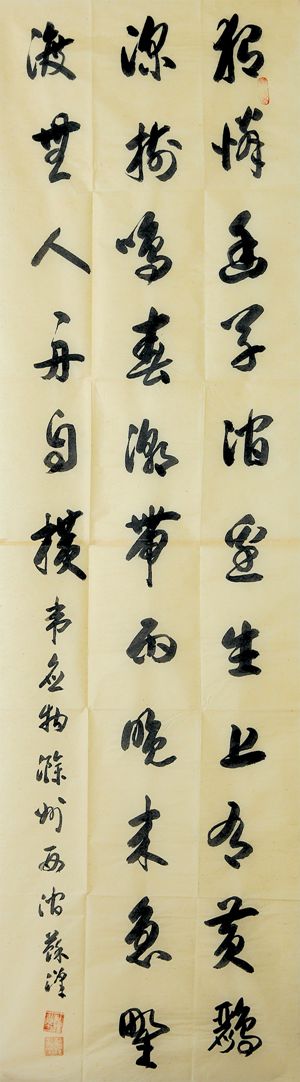 獨憐幽草澗邊生上有黄鸝
深樹鳴春潮帶雨晚來急野
渡無人舟自横韋應物滁州西澗蘇